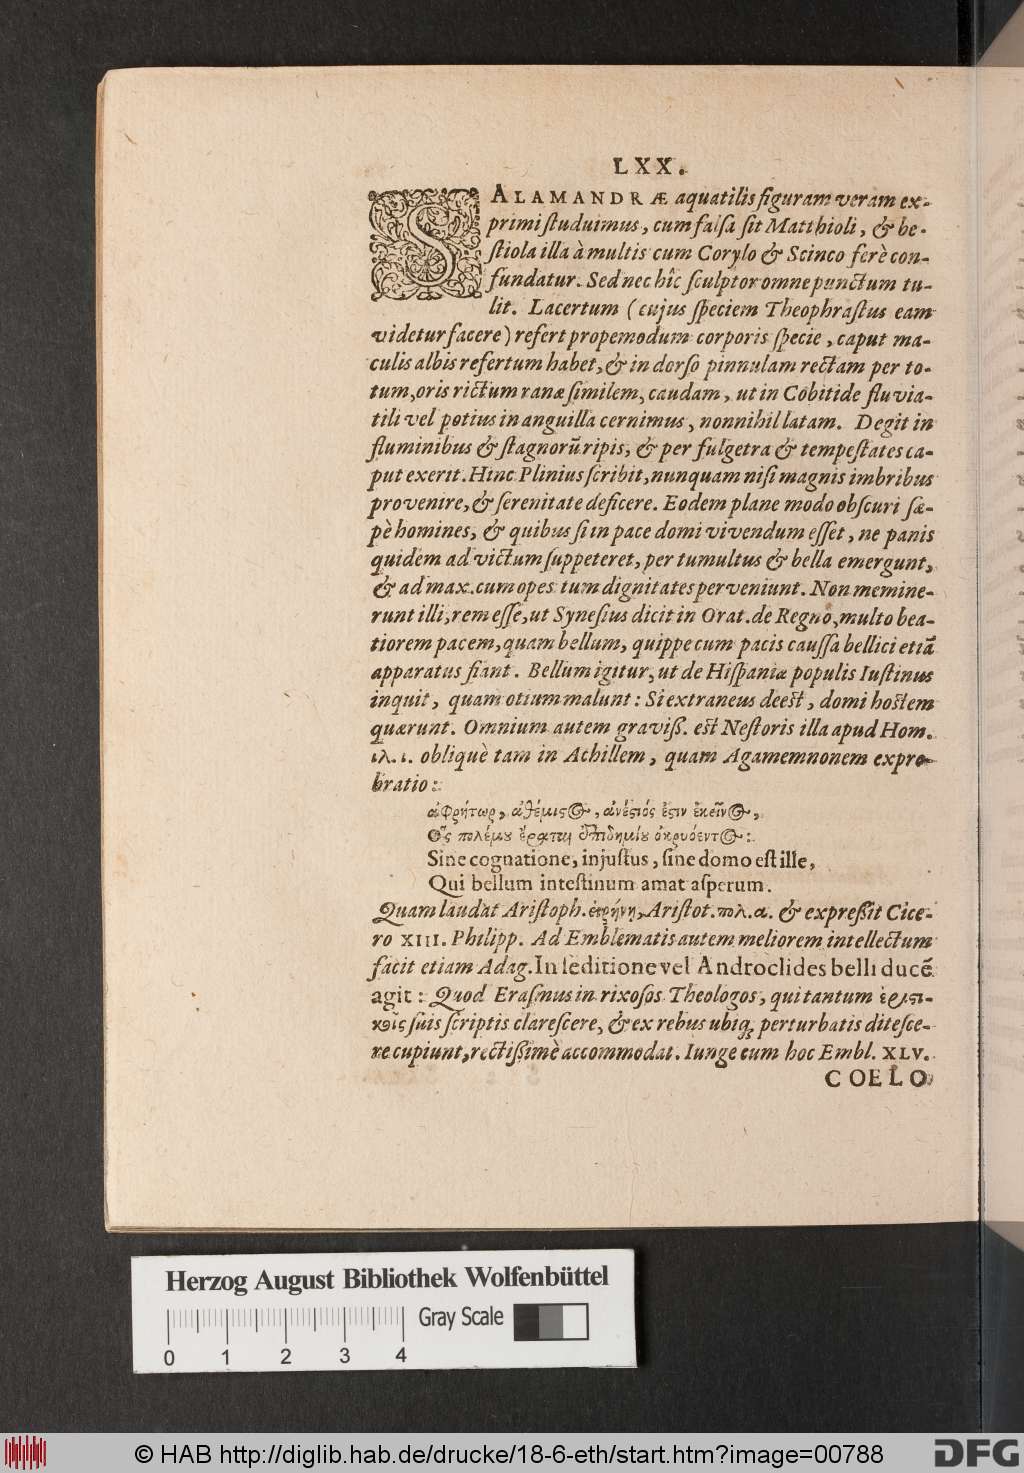 LXX.
SALAMANDRÆ aquatilis figuram veram ex-
primi studuimus, cum falsa sit Matthioli, & be-
stiola illa à multis cum Corylo & Scinco ferè con-
fundatur. Sed nec hîc sculptor omne punctum tu-
lit. Lacertum (cujus speciem Theophrastus eam
videtur facere) refert propemodum corporis specie, caput ma-
culis albis refertum habet, & in dorso pinnulam rectam per to-
tum, oris rictum ranæ similem, caudam, ut in Cobitide fluvia-
tili vel potius in anguilla cernimus, nonnihil latam. Degit in
fluminibus & stagnorũ ripis, & per fulgetra & tempestates ca-
put exerit. Hinc Plinius scribit, nunquam nisi magnis imbribus
provenire, & serenitate deficere. Eodem plane modo obscuri sæ-
pè homines, & quibus si in pace domi vivendum esset, ne panis
quidem ad victum suppeteret, per tumultus & bella emergunt,
& ad max. cum opes tum dignitates perveniunt. Non memine-
runt illi, rem esse, ut Synesius dicit in Orat. de Regno, multo bea-
tiorem pacem, quam bellum, quippe cum pacis caussa bellici etiã
apparatus fiant. Bellum igitur, ut de Hispaniæ populis Iustinus
inquit, quam otium malunt: Si extraneus deest, domi hostem
quærunt. Omnium autem graviss. est Nestoris illa apud Hom.
ιλ. ι. obliquè tam in Achillem, quam Agamemnonem expro-
bratio:
ἀφρήτωρ, ἀθέμιςος, ἀνέςιός ἐςιν ἐκεῖνος,
Ὃς πολέμου ἔραται ἐπιδημίου ὀκρυόεντος:
Sine cognatione, injustus, sine domo est ille,
Qui bellum intestinum amat asperum.
Quam laudat Aristoph. εἰρήνῃ, Aristot. πολ. α. & expressit Cice-
ro XIII. Philipp. Ad Emblematis autem meliorem intellectum
facit etiam Adag. In seditione vel Androclides belli ducẽ
agit: Quod Erasmus in rixosos Theologos, qui tantum ἐριςι-
κοῖς suis scriptis clarescere, & ex rebus ubiq; perturbatis ditesce-
re cupiunt, rectissimè accommodat. Iunge cum hoc Embl. XLV.
COELO
Herzog August Bibliothek Wolfenbüttel
Gray Scale
0 1 2 3 4
© HAB http://diglib.hab.de/drucke/18-6-eth/start.htm?image=00788
DFG